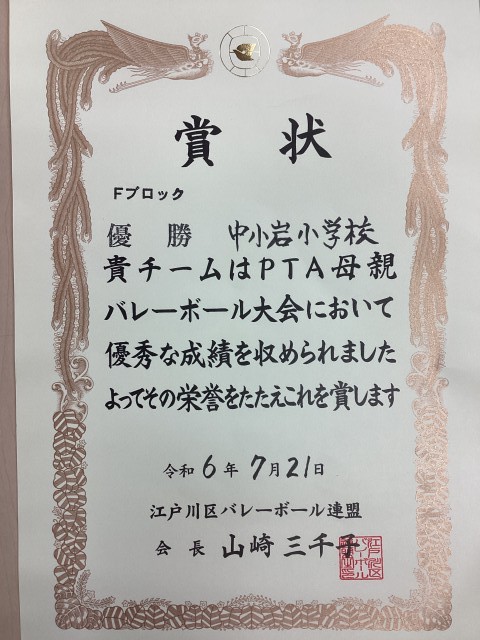 賞状
Fブロック
優勝 中小岩小学校
貴チームはPTA母親
バレーボール大会において
優秀な成績を収められました
よってその栄誉をたたえこれを賞します
令和6年7月21日
江戸川区バレーボール連盟
会長 山崎三千子